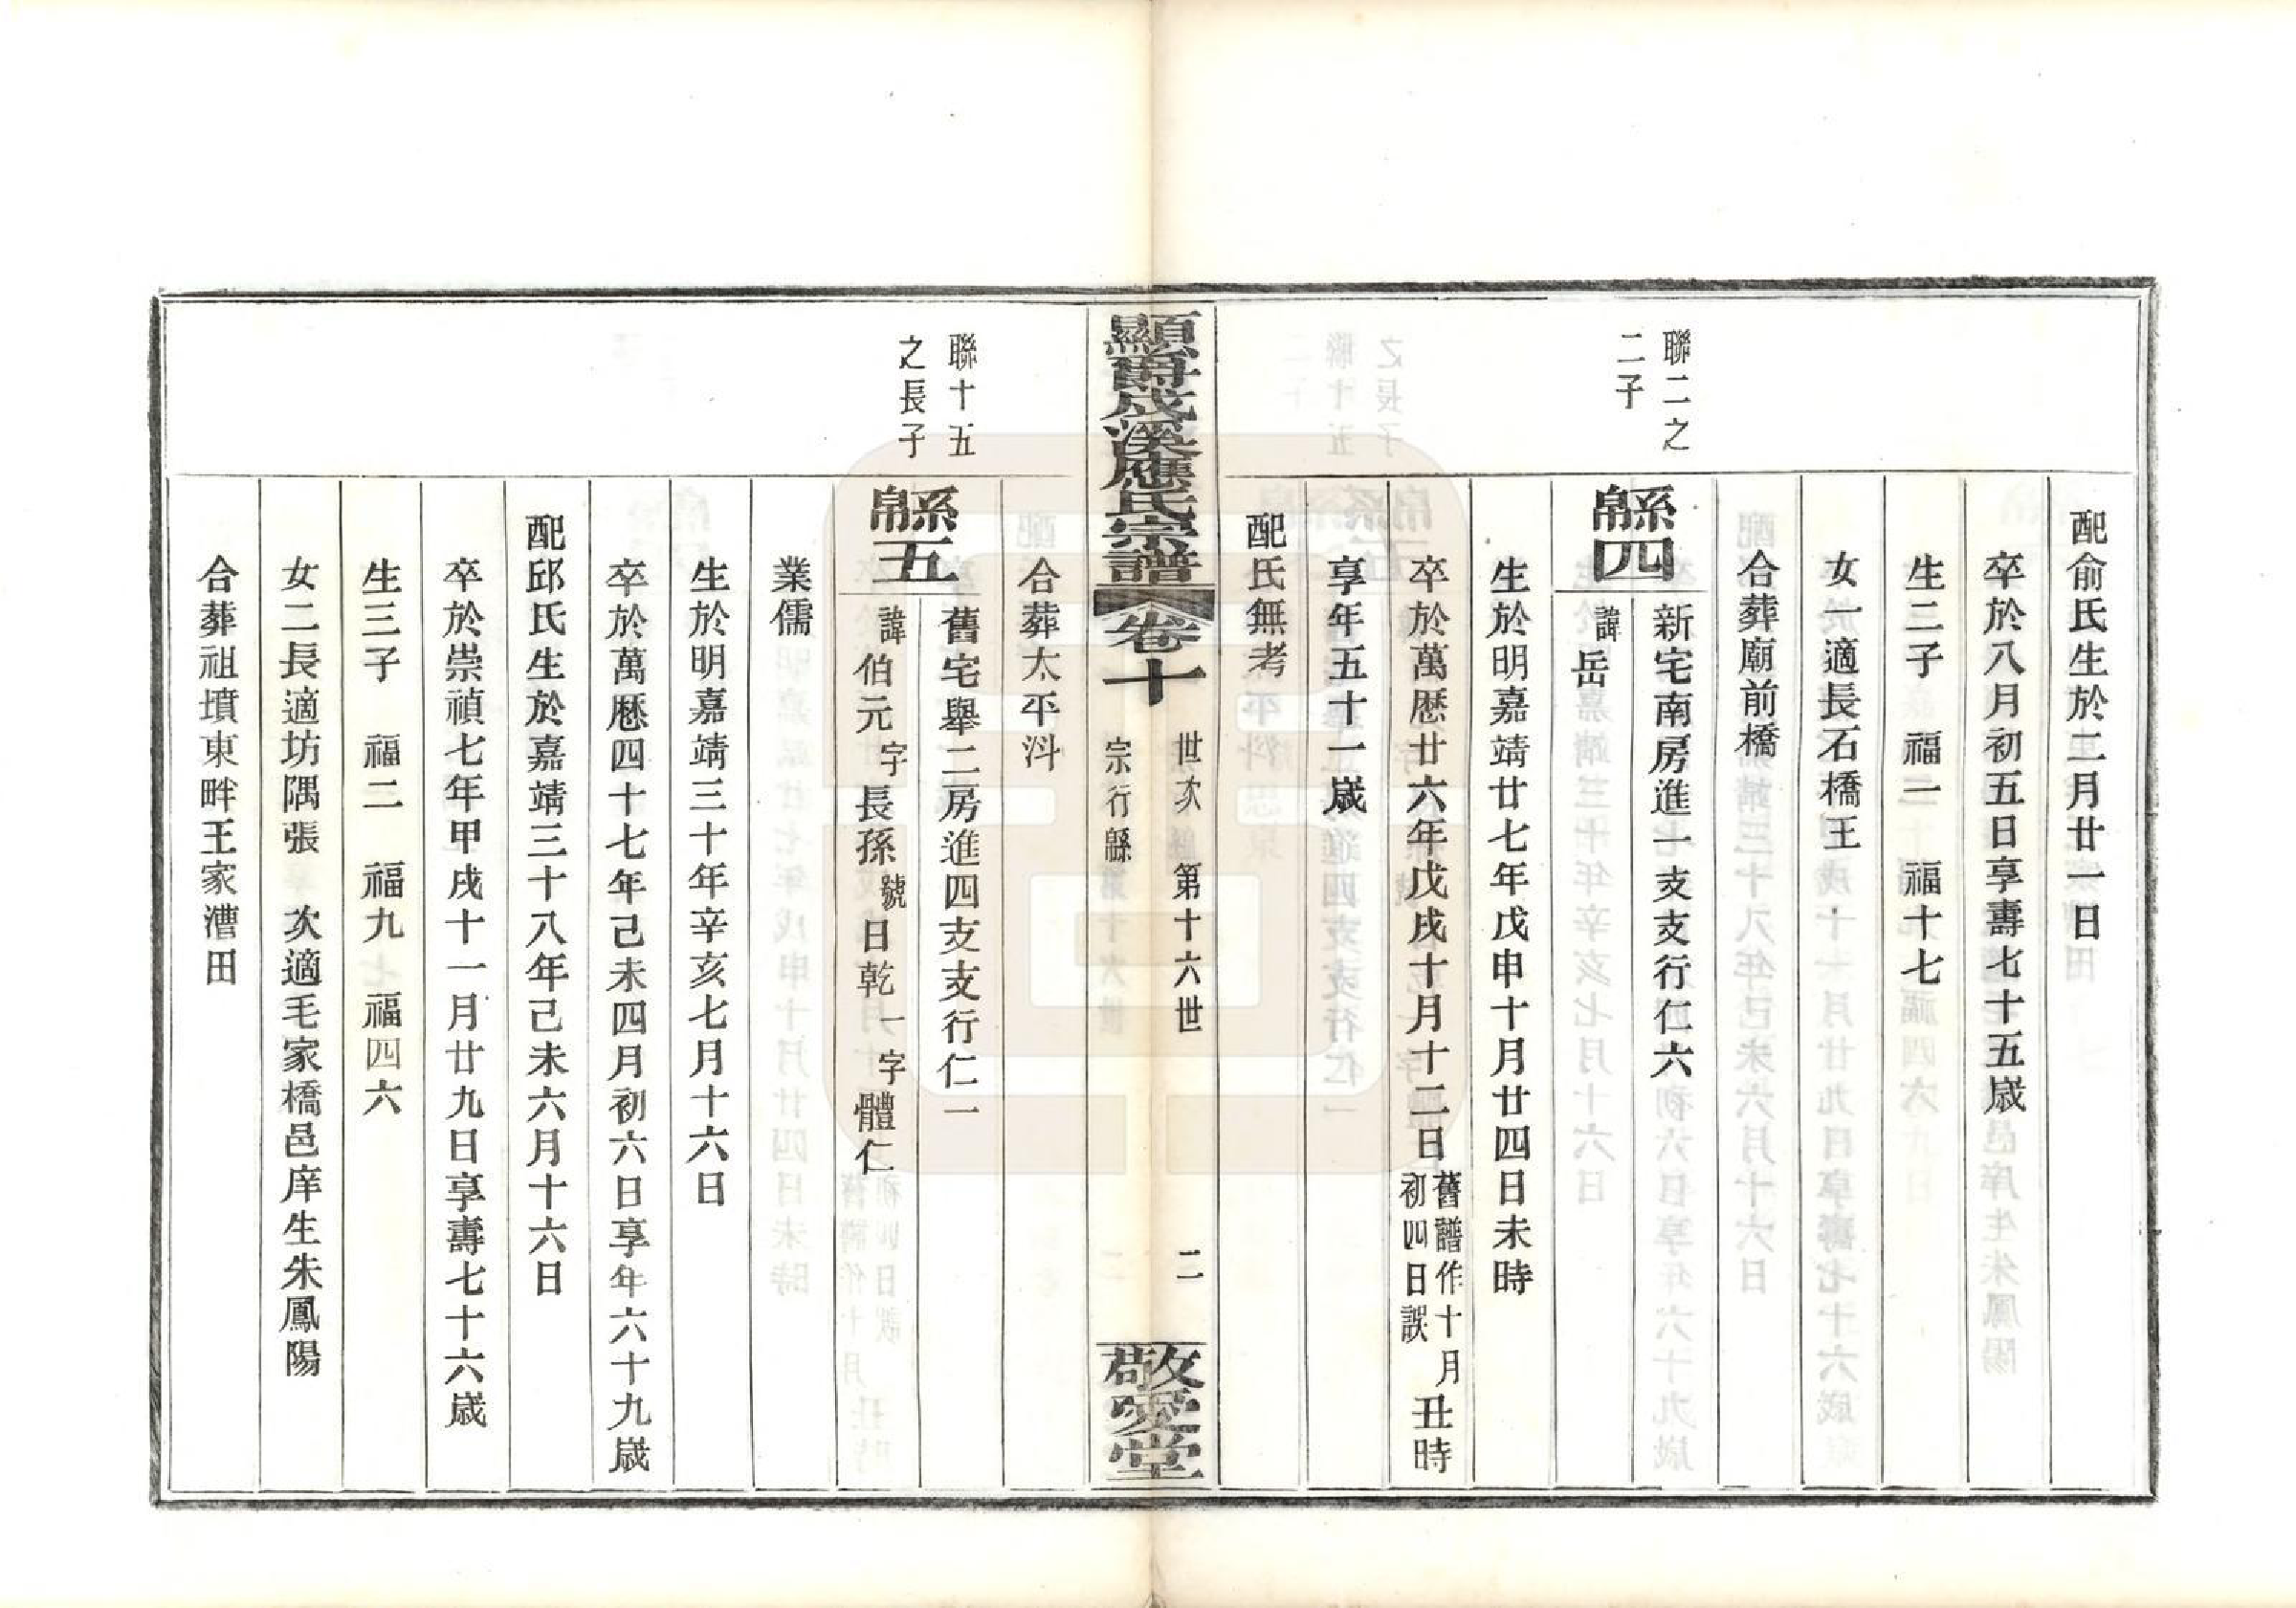 配俞氏生於二月廿一日
卒於八月初五日享壽七十五歲
生二子　福一　福十七
女一適長石橋王
合葬廟前橋
聯二之
二子
緜四
新宅南房進一支支行仁六
諱岳
生於明嘉靖廿七年戊申十月廿四日未時
卒於萬歷廿六年戊戌十月十二日舊譜作十月初四日誤丑時
享年五十一歲
配氏無考
顯爵成溪應氏宗譜　卷十
世次　第十六世　二
宗行緜
敬愛堂
合葬太平㳆
聯十五
之長子
緜五
舊宅舉二房進四支支行仁一
諱伯元字長孫號日乾一字體仁
業儒
生於明嘉靖三十年辛亥七月十六日
卒於萬歷四十七年己未四月初六日享年六十九歲
配邱氏生於嘉靖三十八年己未六月十六日
卒於崇禎七年甲戌十一月廿九日享壽七十六歲
生三子　福二　福九　福四六
女二長適坊隅張　次適毛家橋邑庠生朱鳳陽
合葬祖墳東畔王家漕田